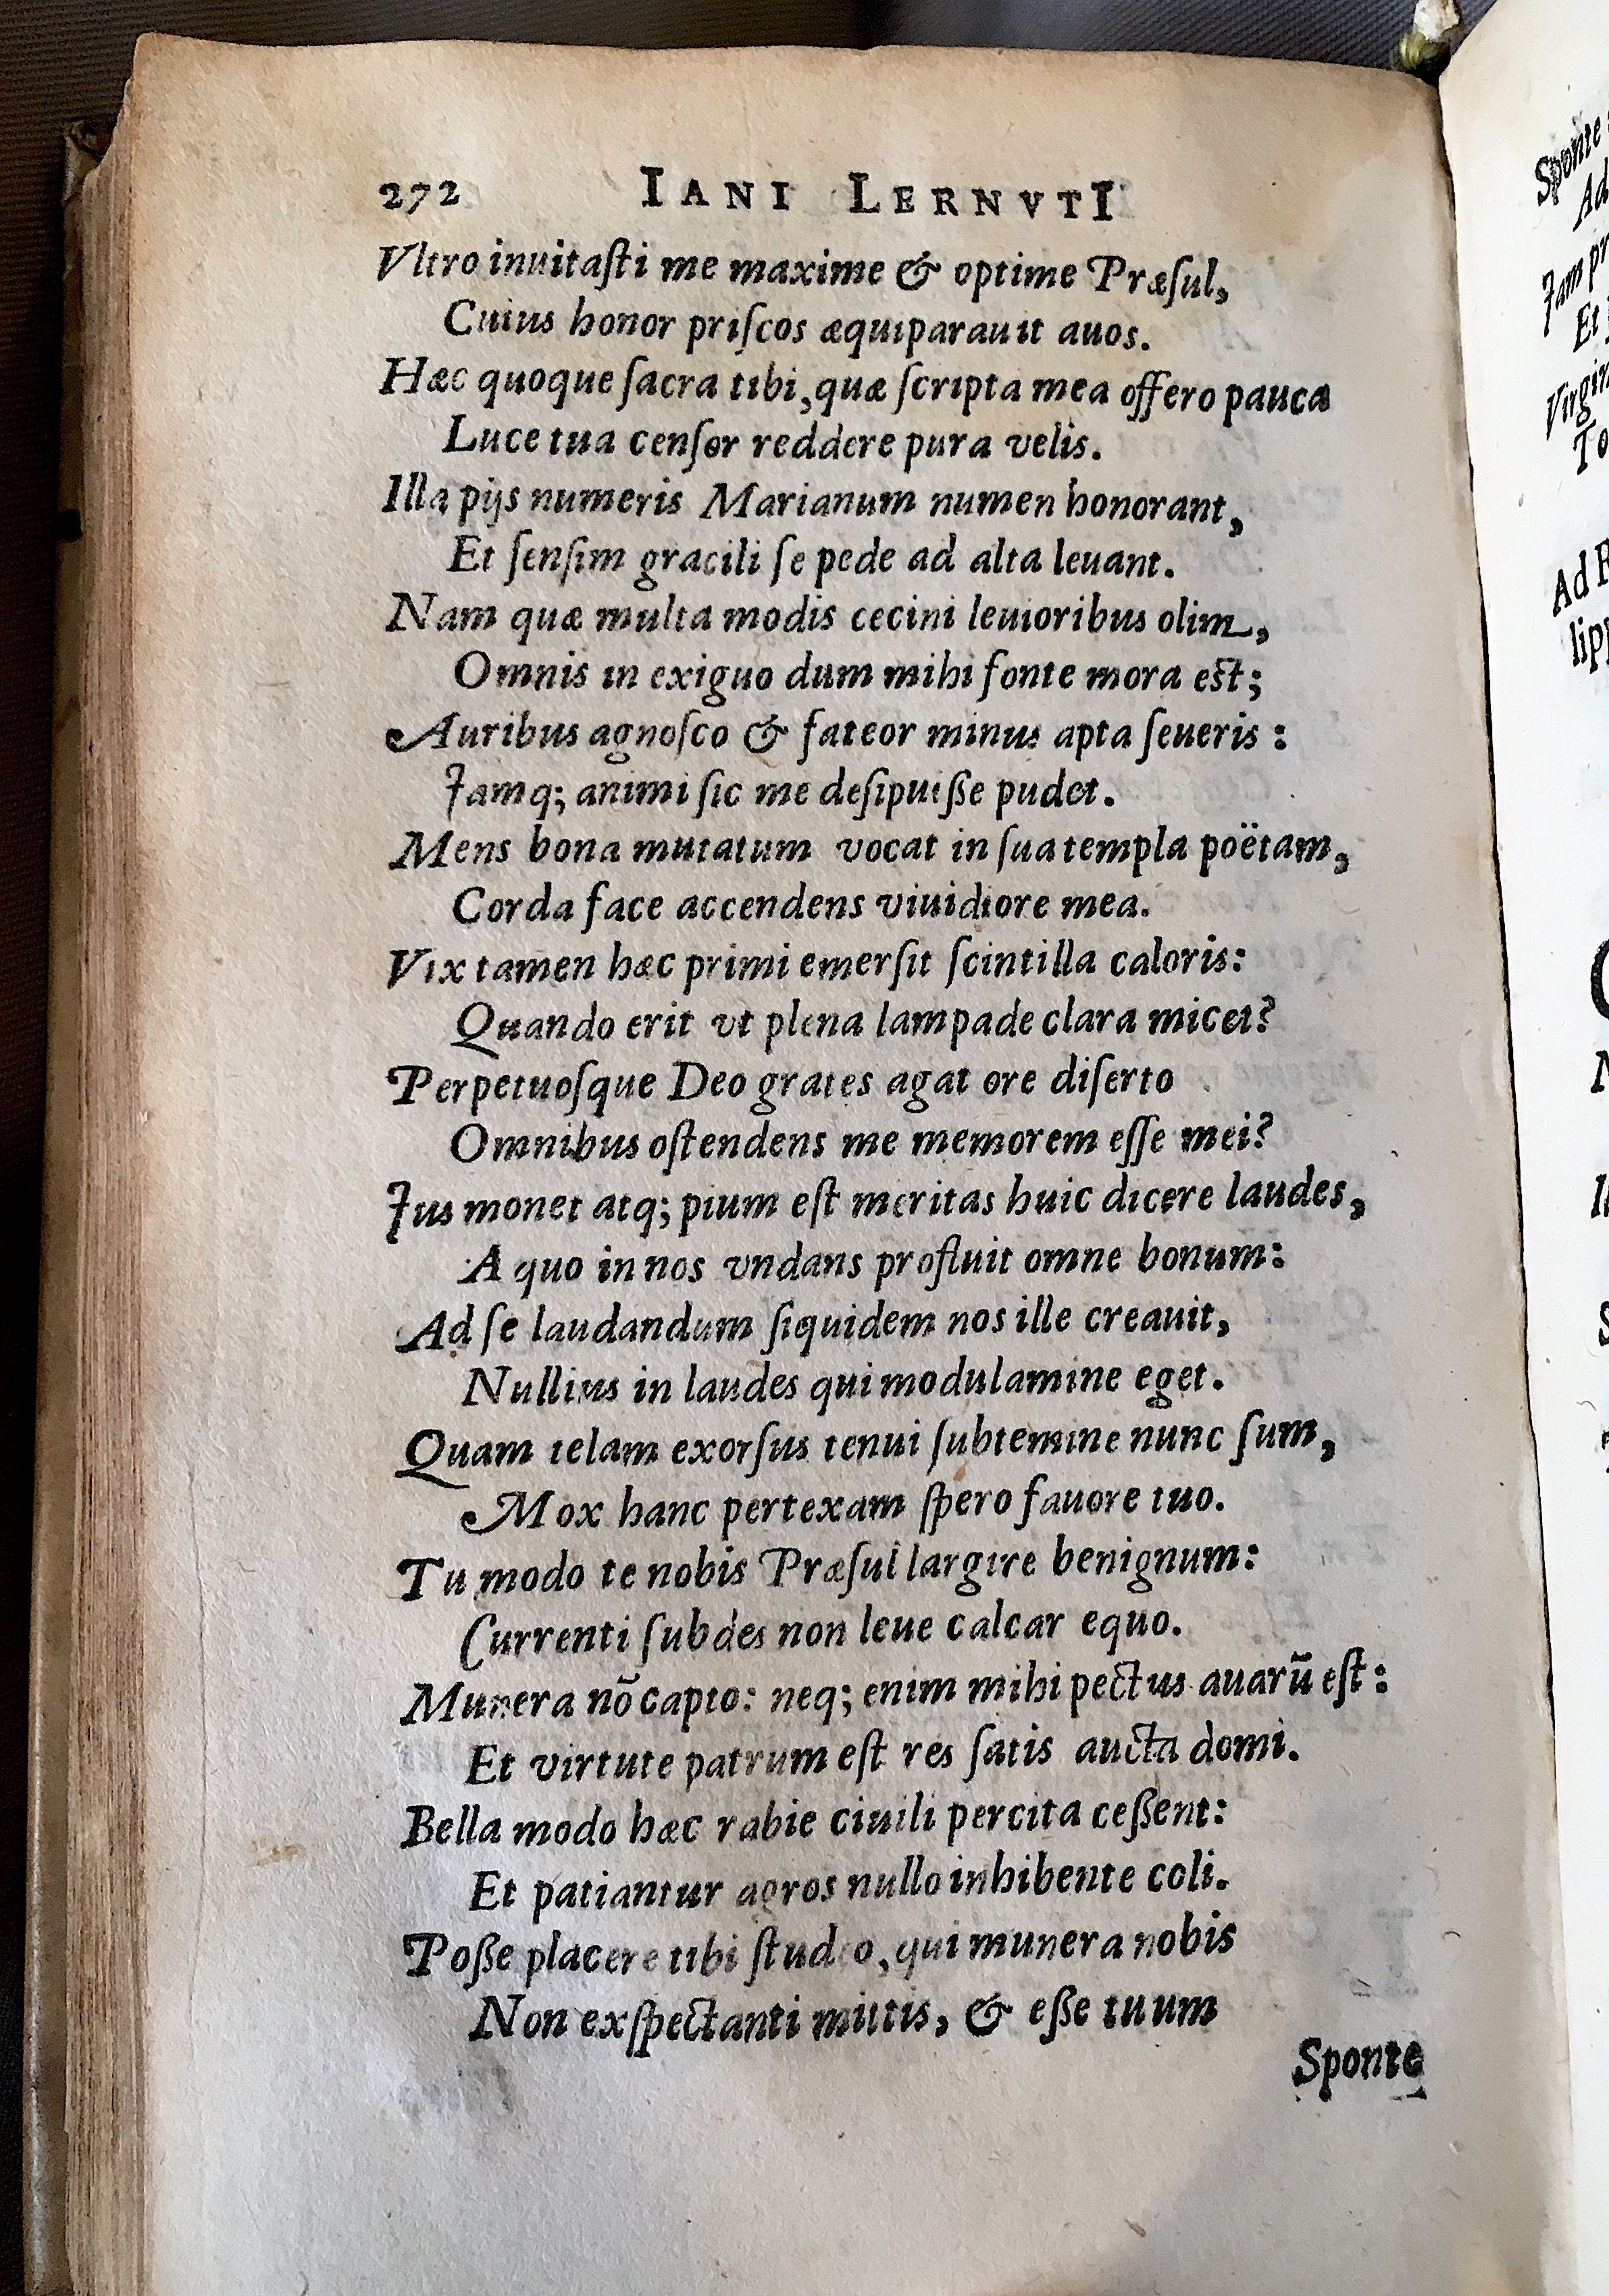 272 IANI LERNVTI
Vltro inuitaſti me maxime & optime Præſul,
Cuius honor priſcos æquiparauit auos.
Hæc quoque ſacra tibi, quæ ſcripta mea offero pauca
Luce tua cenſor reddere pura velis.
Illa pijs numeris Marianum numen honorant,
Et ſenſim gracili ſe pede ad alta leuant.
Nam quæ multa modis cecini leuioribus olim,
Omnis in exiguo dum mihi fonte mora est;
Auribus agnoſco & fateor minus apta ſeueris:
Jamq; animi ſic me deſipuiße pudet.
Mens bona mutatum vocat in ſua templa poëtam,
Corda face accendens viuidiore mea.
Vix tamen hæc primi emerſit ſcintilla caloris:
Quando erit vt plena lampade clara micet?
Perpetuoſque Deo grates agat ore diſerto
Omnibus oſtendens me memorem eſſe mei?
Jus monet atq; pium eſt meritas huic dicere laudes,
A quo in nos vndans profluit omne bonum:
Ad ſe laudandum ſiquidem nos ille creauit,
Nullius in laudes qui modulamine eget.
Quam telam exorſus tenui ſubtemine nunc ſum,
Mox hanc pertexam ſpero fauore tuo.
Tu modo te nobis Præſul largire benignum:
Currenti ſubdes non leue calcar equo.
Munera nō capto: neq; enim mihi pectus auarū eſt:
Et virtute patrum eſt res ſatis aucta domi.
Bella modo hæc rabie ciuili percita ceßent:
Et patiantur agros nullo inhibente coli.
Poße placere tibi ſtudeo, qui munera nobis
Non exſpectanti mittis, & eße tuum
Sponte
Sponte
Ad
Jam pr
Et
Virgin
To
Ad
lipp